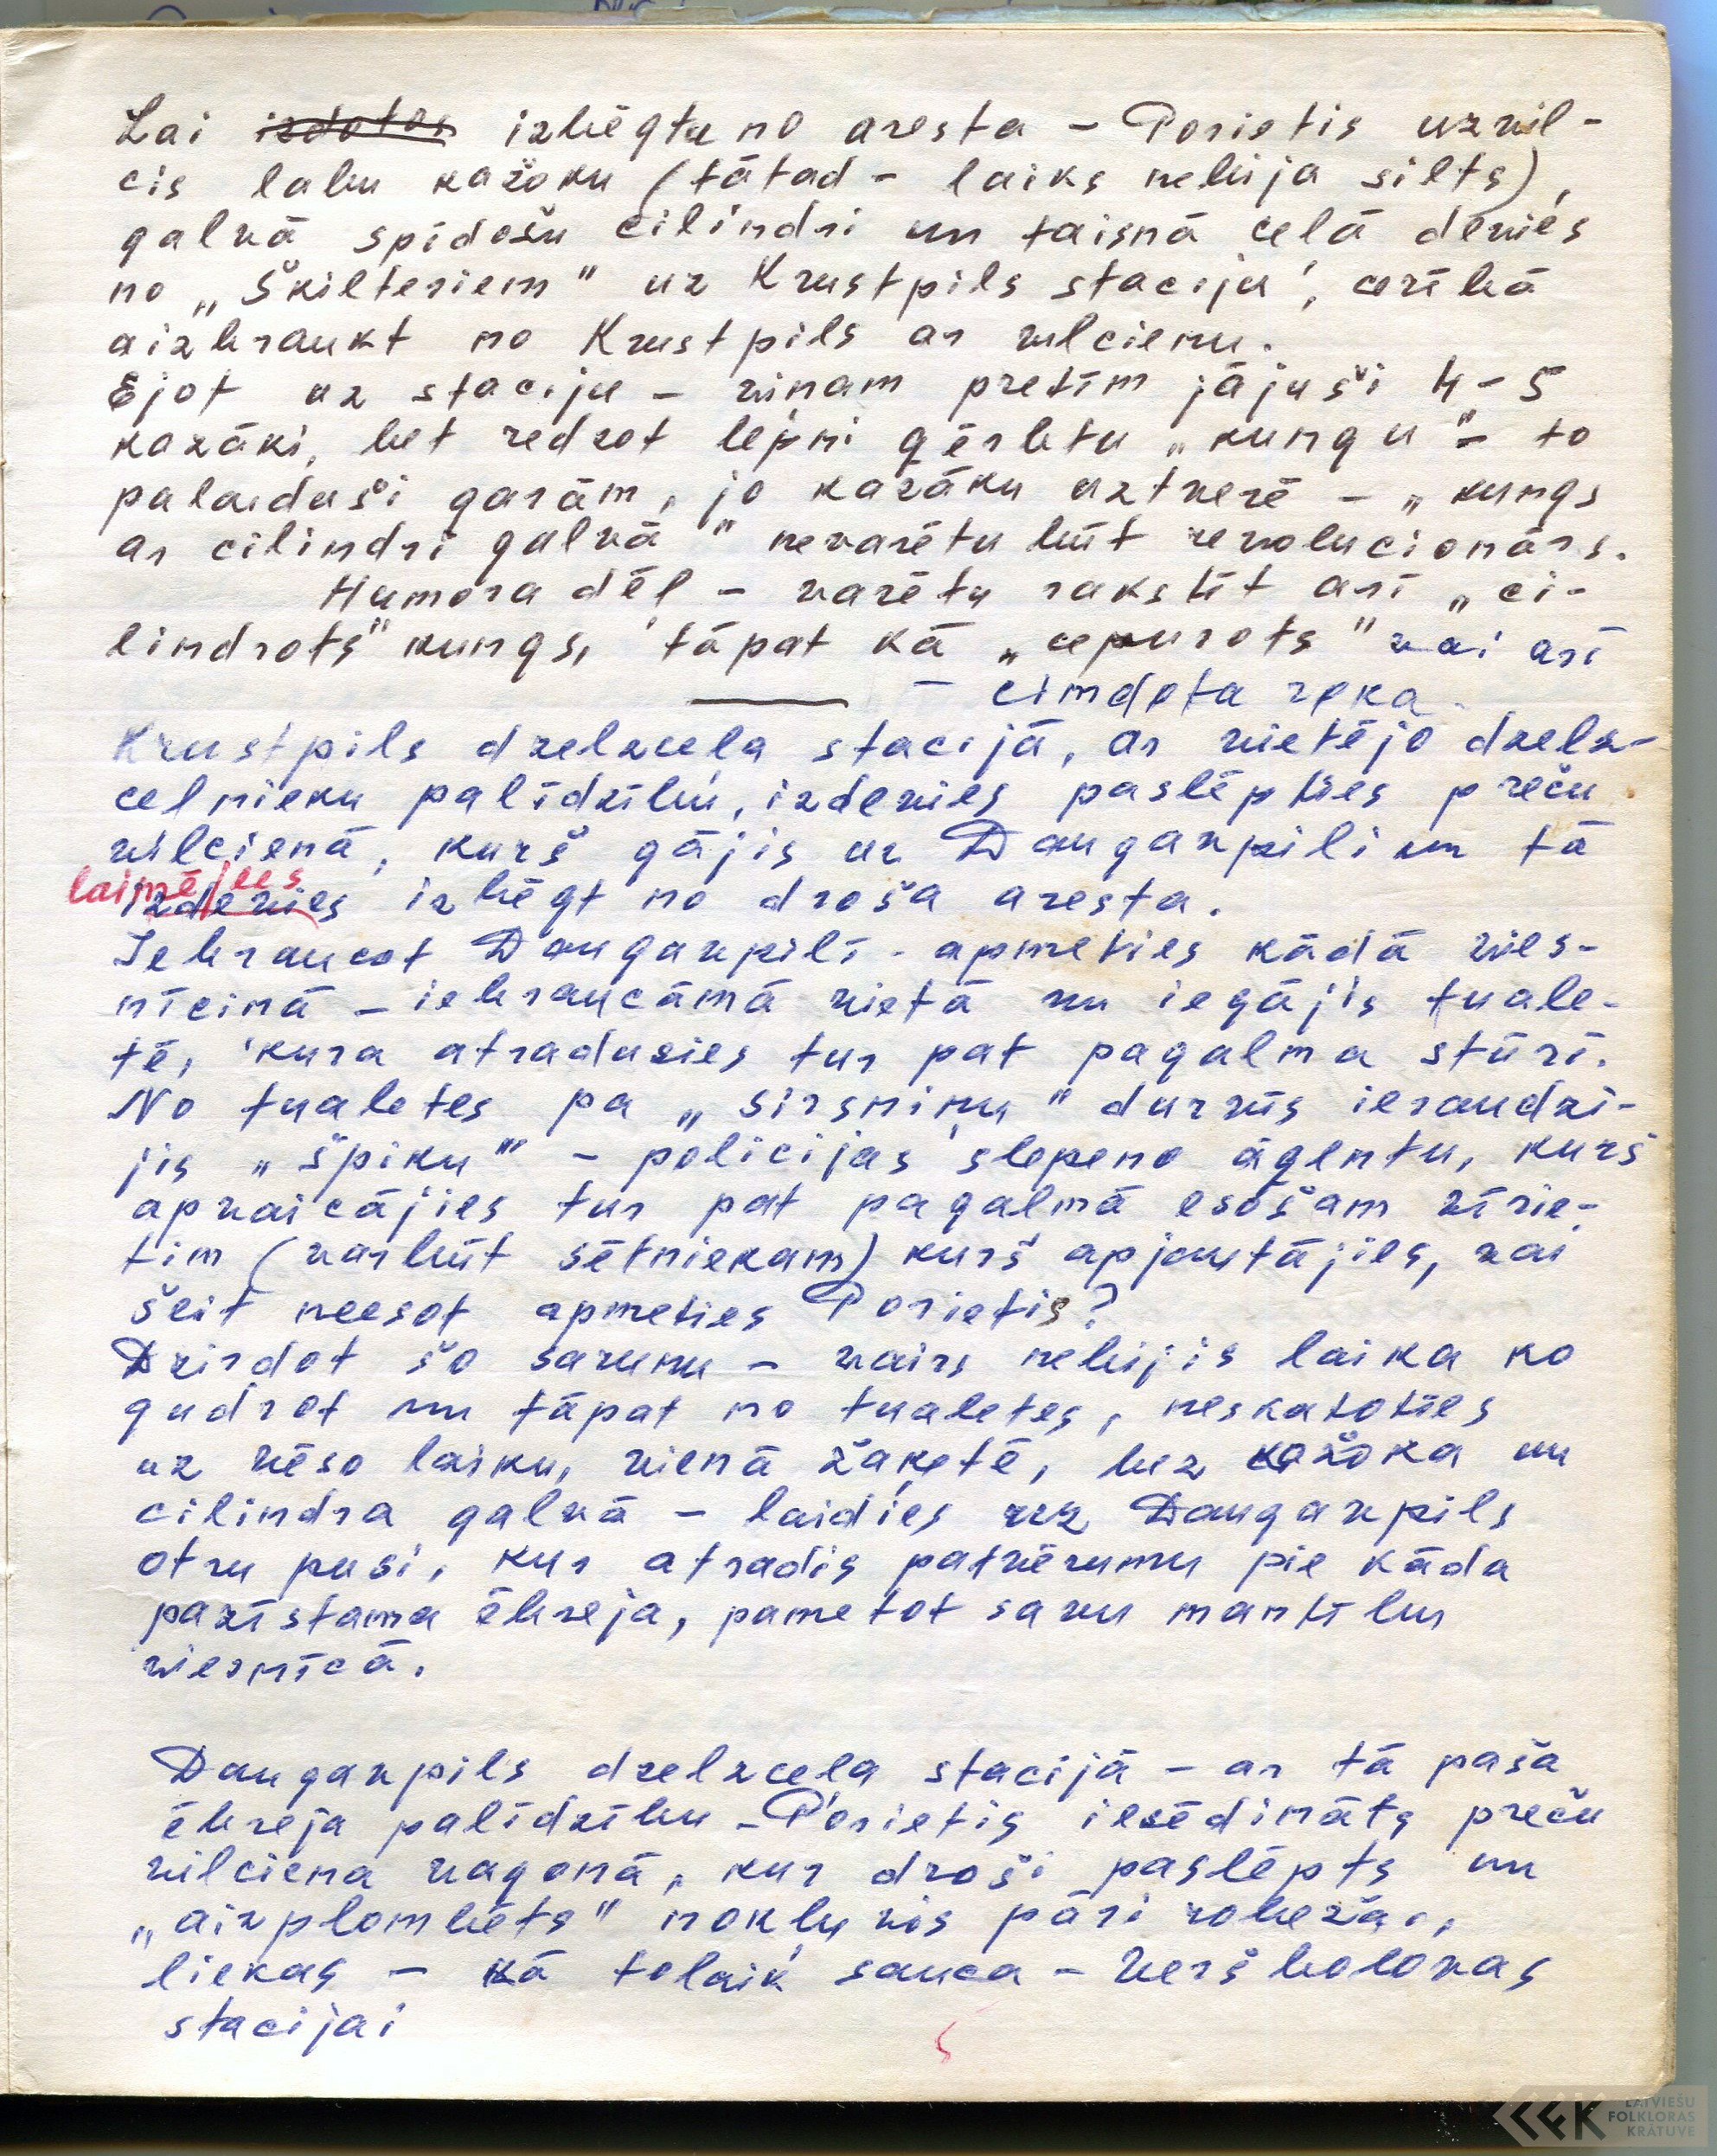 Lai izdotos izbēgtu no aresta – Porietis uzvil-
cis labu kažoku (tātad – laiks nebija silts),
galvā spīdošu cilindri un taisnā ceļā devies
no „Škilteriem" uz Krustpils staciju, cerībā
aizbraukt no Krustpils ar vilcienu.
Ejot uz staciju – viņam pretīm jājuši 4-5
kazāki, bet redzot lepni ģērbtu „kungu" – to
palaiduši garām, jo kazāku uztverē – „kungs
ar cilindri galvā" nevarētu būt revolucionārs.
Humora dēļ – varētu rakstīt arī „ci-
lindrots" kungs, tāpat kā „cepurots" vai arī
– cimdota roka.
Krustpils dzelzceļa stacijā, ar vietējo dzelz-
ceļnieku palīdzību, izdevies paslēpties preču
vilcienā, kurš gājis uz Daugavpili un tā
laimējies
izdevies izbēgt no droša aresta.
Iebraucot Daugavpilī – apmeties kādā vies-
nīciņā – iebraucāmā vietā un iegājis tuale-
tē, kura atradusies tur pat pagalma stūrī.
No tualetes pa „sirsniņu" durvīs ieraudzī-
jis „špiku" – policijas slepeno aģentu, kurš
apvaicājies tur pat pagalmā esošam vīrie-
tim (varbūt sētniekam) kurš apjautājies, vai
šeit neesot apmeties Porietis?
Dzirdot šo sarunu – vairs nebijis laika ko
gudrot un tāpat no tualetes, neskatoties
uz vēso laiku, vienā žaķetē, bez kažoka un
cilindra galvā – laidies uz Daugavpils
otru pusi, kur atradis patvērumu pie kāda
pazīstama ēbreja, pametot savu mantību
viesnīcā.
Daugavpils dzelzceļa stacijā – ar tā paša
ēbreja palīdzību – Porietis iesēdināts preču
vilciena vagonā, kur droši paslēpts un
„aizplombēts" nokļuvis pāri robežai,
liekas – kā tolaik sauca – Veršbolovas
stacijai
LATVIEŠU
FOLKLORAS
KRĀTUVE